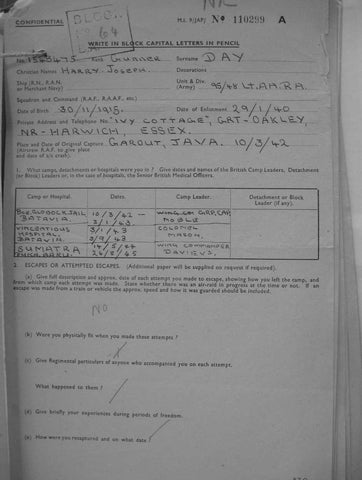 CONFIDENTIAL
M.I. 9/JAP/ No 110299 A
WRITE IN BLOCK CAPITAL LETTERS IN PENCIL
No. GUNNER Surname DAY
Christian Names HARRY. JOSEPH. Decorations
Ship (R.N., R.A.N. or Merchant Navy) Unit & Div. (Army) 95/48 LT. AA. RA.
Squadron and Command (R.A.F., R.A.A.F., etc.)
Date of Birth 30/11/1915 Date of Enlistment 29/1/40
Private Address and Telephone No. "IVY COTTAGE", GRT-OAKLEY,
NR-HARWICH, ESSEX.
Place and Date of Original Capture GAROUT, JAVA. 10/3/42
(Aircrew R.A.F. to give place
and date of a/c crash).
1. What camps, detachments or hospitals were you in ? Give dates and names of the British Camp Leaders, Detachment
(or Block) Leaders or, in the case of hospitals, the Senior British Medical Officers.
Camp or Hospital. Dates. Camp Leader. Detachment or Block Leader (if any).
JAIL 10/3/42 — WING COM GRP. CAP.
BATAVIA. 3/1/43 NOBLE
3/1/43 COLONEL
HOSPITAL. MASON.
BATAVIA. 3/9/43
SUMATRA WING COMMANDER
DAVIES.
2. ESCAPES OR ATTEMPTED ESCAPES. (Additional paper will be supplied on request if required).
(a) Give full description and approx. date of each attempt you made to escape, showing how you left the camp, and
from which camp each attempt was made. State whether there was an air-raid in progress at the time or not. If an
escape was made from a train or vehicle the approx. speed and how it was guarded should be included.
NO
(b) Were you physically fit when you made these attempts ?
(c) Give Regimental particulars of anyone who accompanied you on each attempt.
What happened to them ?
(d) Give briefly your experiences during periods of freedom.
(e) How were you recaptured and on what date ?